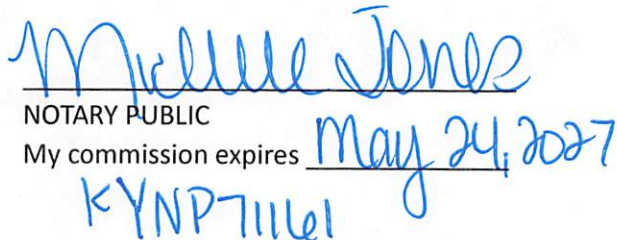 Michelle Jones
NOTARY PUBLIC
My commission expires May 24, 2027
KYNP71161